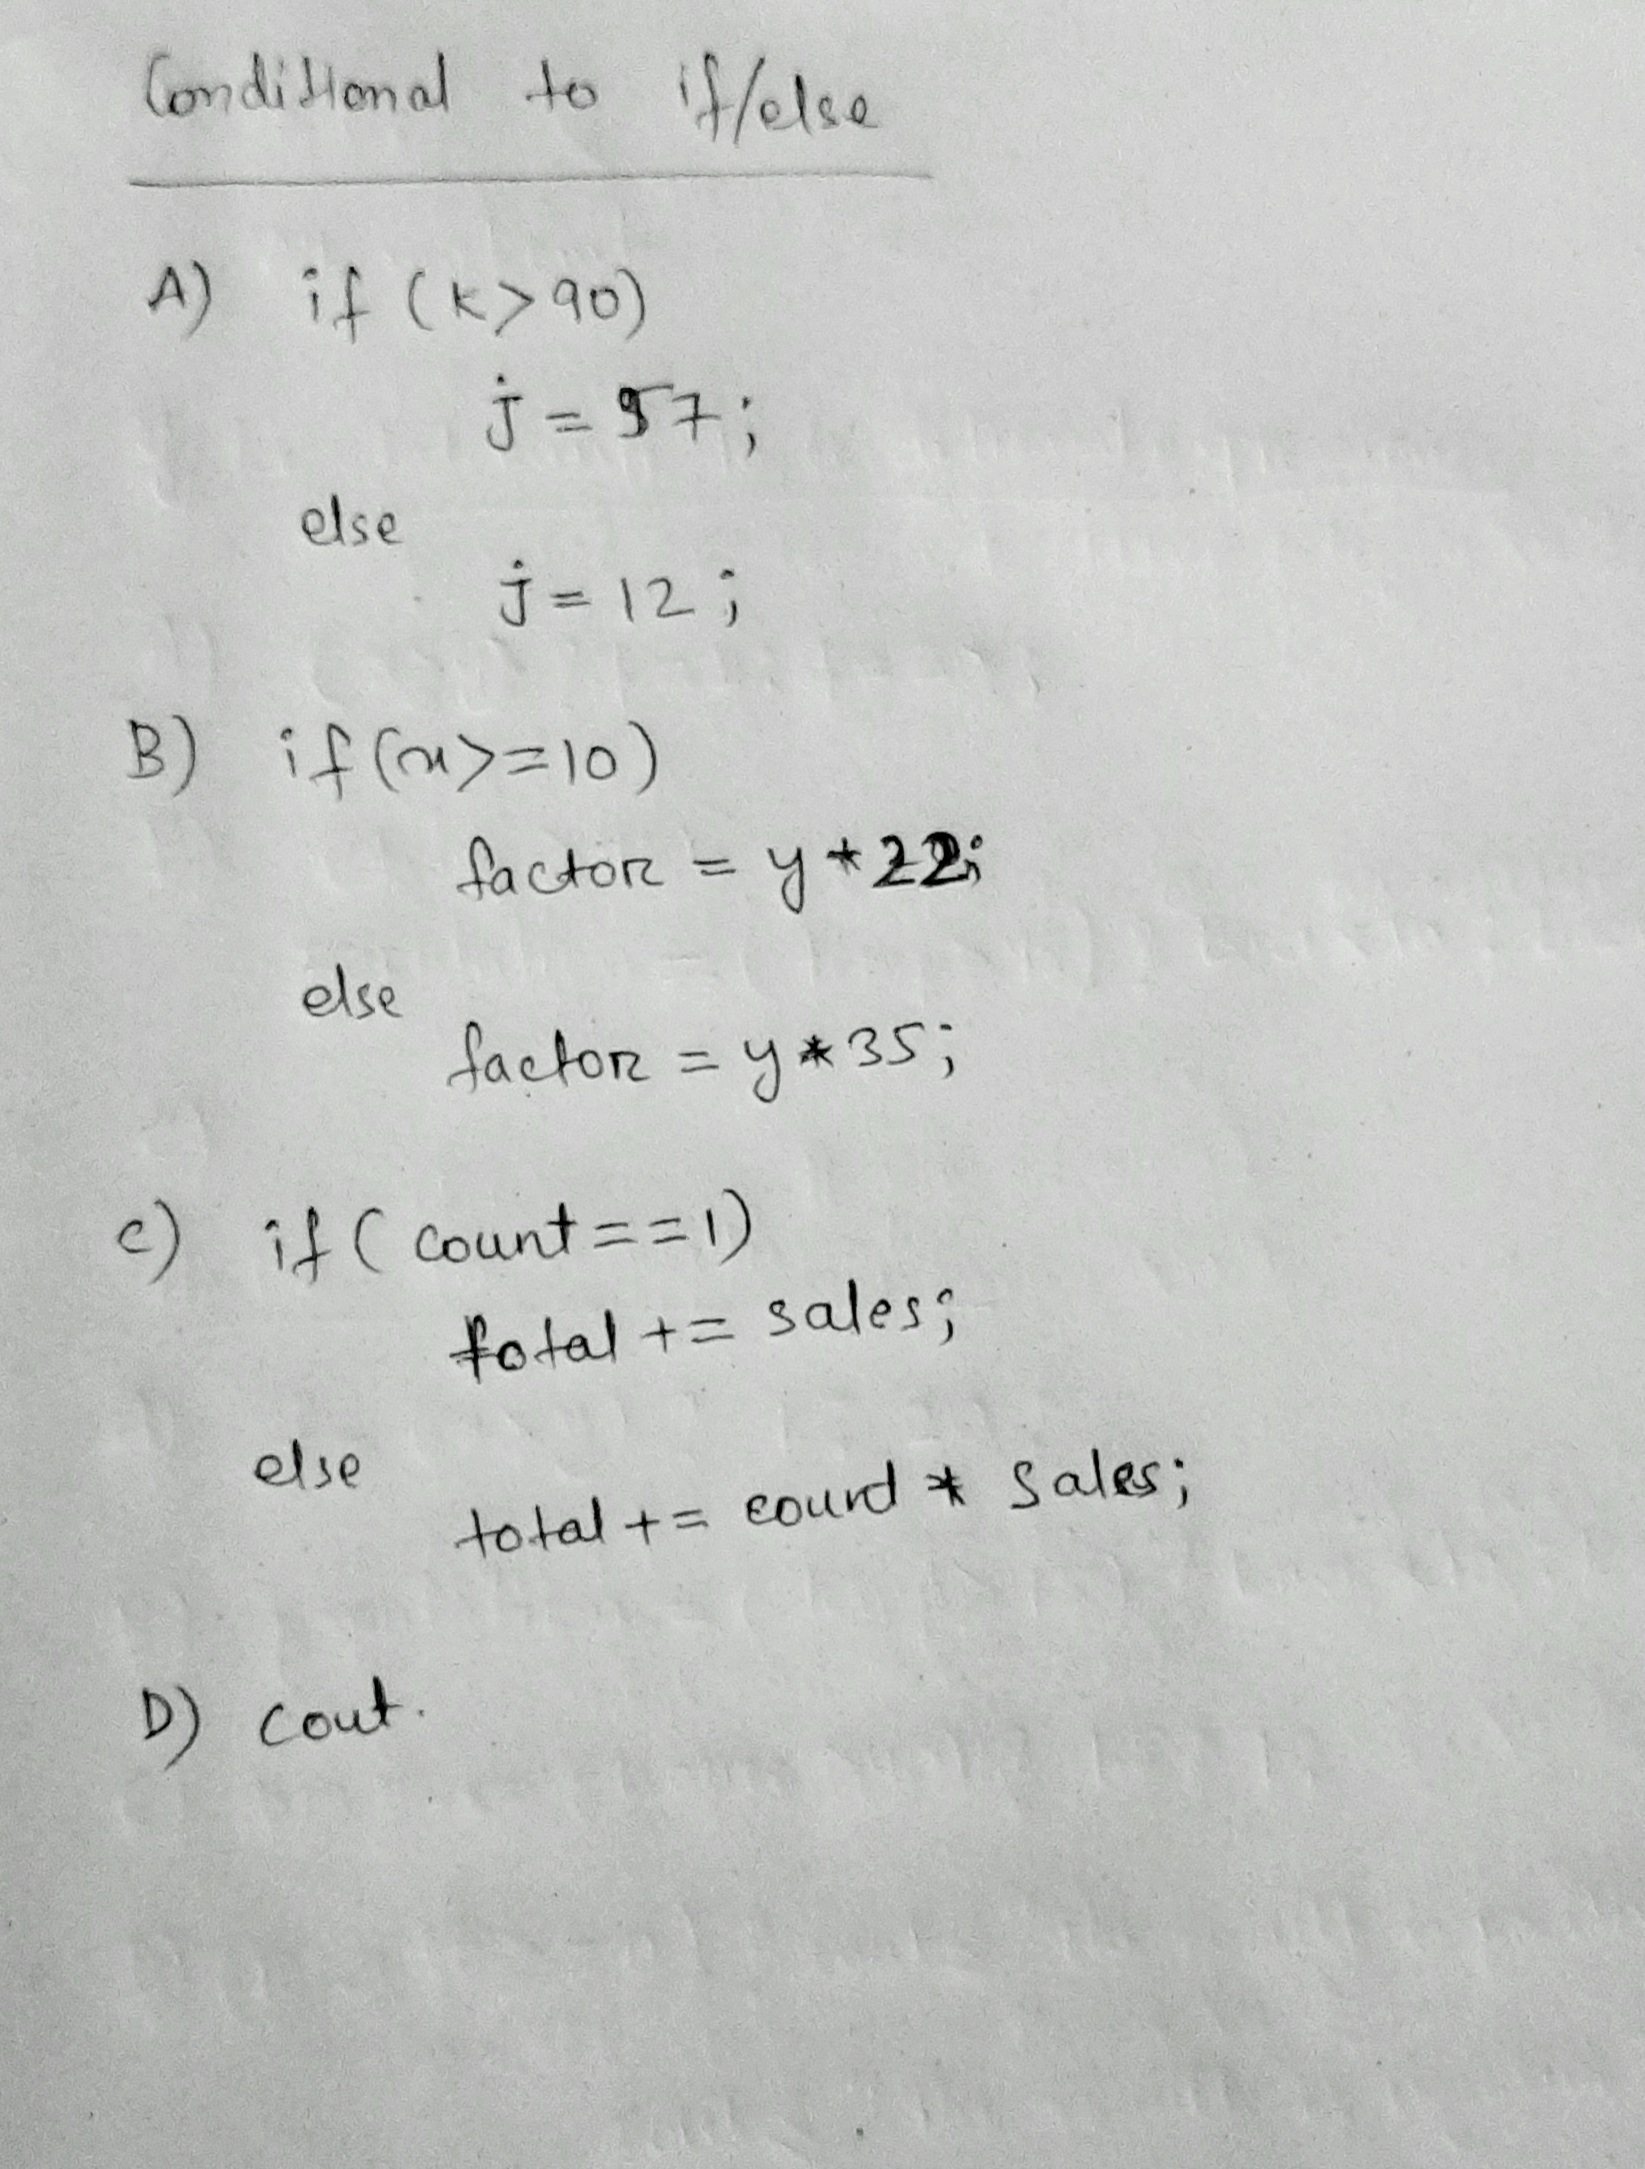 Conditional to if/else
A) if (k>90)
j = 57;
else
j = 12;
B) if(x>=10)
factor = y * 22;
else
factor = y * 35;
C) if (count==1)
total += sales;
else
total += count * sales;
D) cout.